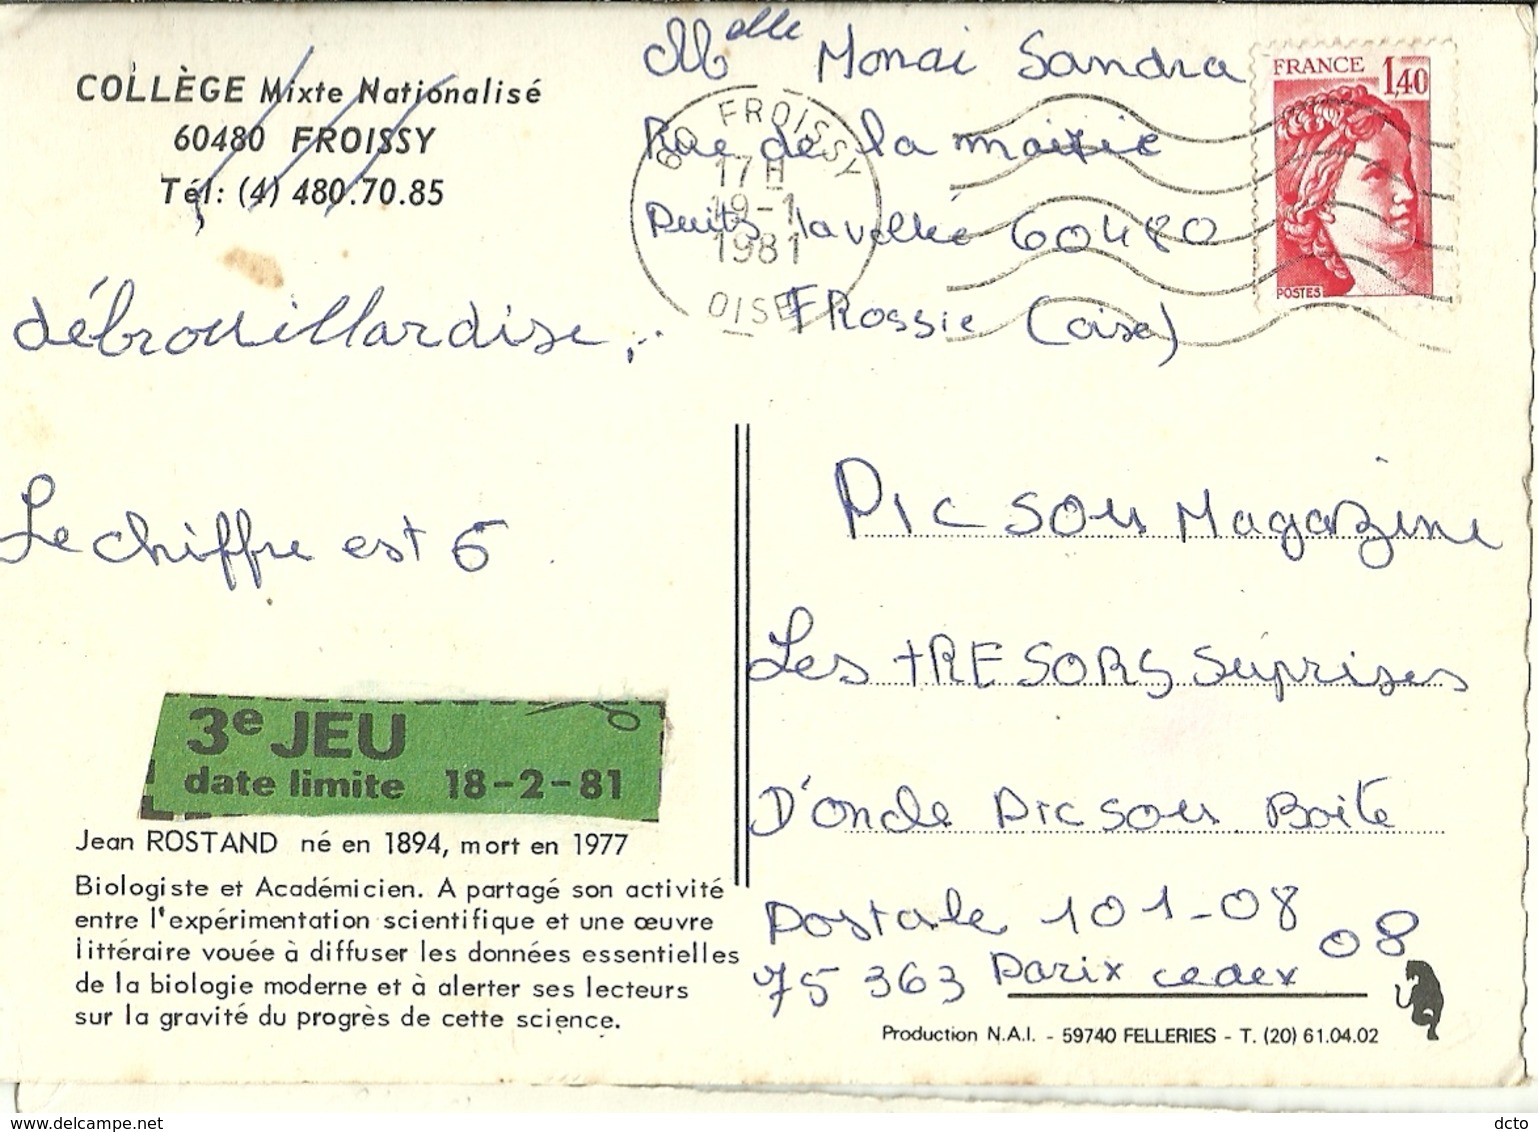 Melle Monai Sandra
COLLÈGE Mixte Nationalisé
60480 FROISSY
Tél: (4) 480.70.85
FRANCE 1,40
POSTES
60 FROISSY
17H
19-1
1981
OISE
Rue de la mairie
Puits la vallée 60480
FRossie (oise)
débrouillardise
Le chiffre est 6
Picsou Magazine
Les tRESORS Suprises
D'oncle Picsou Boite
Postale 101-08
08
75 363 Parix cedex
3e JEU
date limite 18-2-81
Jean ROSTAND né en 1894, mort en 1977
Biologiste et Académicien. A partagé son activité
entre l'expérimentation scientifique et une œuvre
littéraire vouée à diffuser les données essentielles
de la biologie moderne et à alerter ses lecteurs
sur la gravité du progrès de cette science.
Production N.A.I. - 59740 FELLERIES - T. (20) 61.04.02
www.delcampe.net
dcto